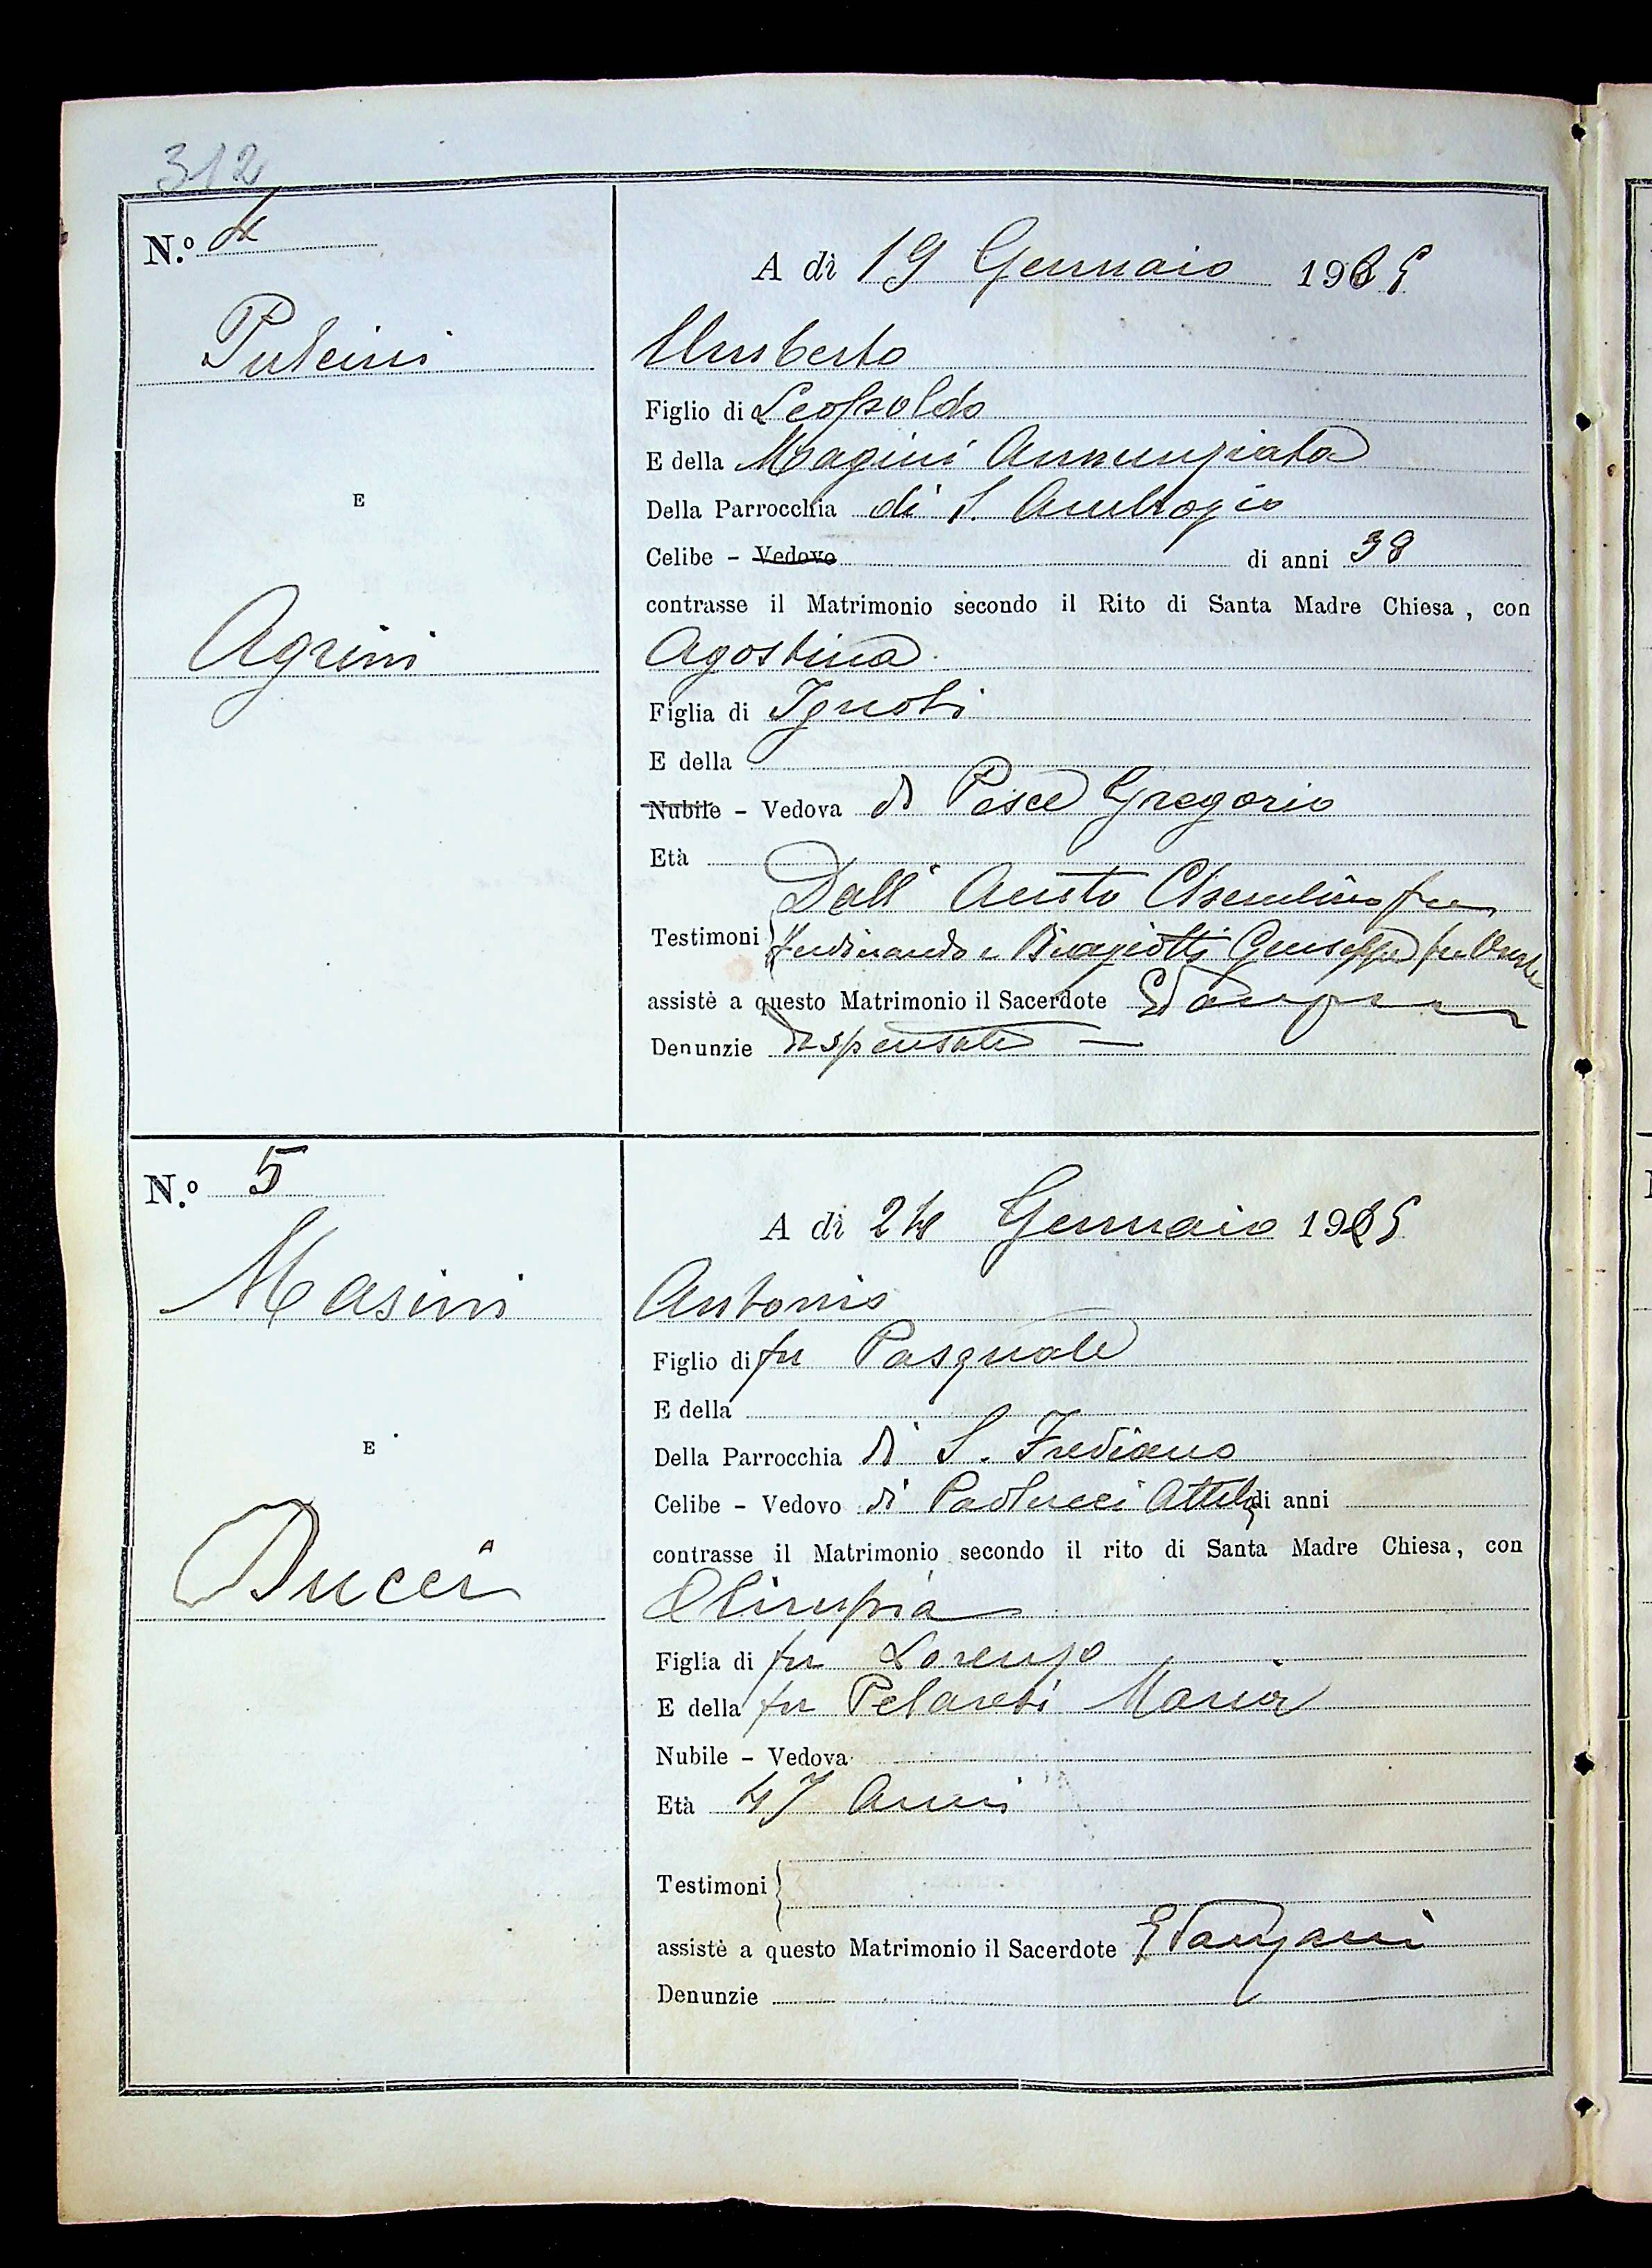 312
N.º 4
A dì 19 Gennaio 1925
Pulcini
Umberto
Figlio di Leopoldo
E della Magini Annunziata
E
Della Parrocchia di S. Ambrogio
Celibe - Vedovo di anni 38
contrasse il Matrimonio secondo il Rito di Santa Madre Chiesa, con
Agrini
Agostina
Figlia di Ignoti
E della
Nubile - Vedova di Pesce Gregorio
Età
Dall' fu
Testimoni Ferdinando e Biagiotti Giuseppe fu
assistè a questo Matrimonio il Sacerdote
Denunzie dispensate
N.º 5
A dì 24 Gennaio 1925
Masini
Antonio
Figlio di fu Pasquale
E della
E
Della Parrocchia di S. Frediano
Celibe - Vedovo di Paolucci di anni
contrasse il Matrimonio secondo il rito di Santa Madre Chiesa, con
Ducci
Olimpia
Figlia di fu Lorenzo
E della fu Maria
Nubile - Vedova
Età 47 Anni
Testimoni
assistè a questo Matrimonio il Sacerdote E Tanzani
Denunzie